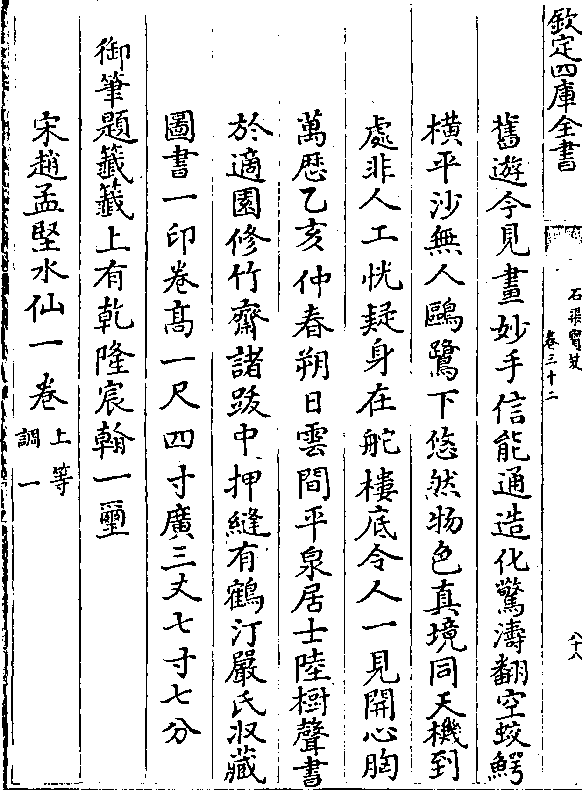 欽定四庫全書
石渠寶笈
卷三十二
八十八
舊遊今見畫妙手信能通造化驚濤翻空蛟鱷
橫平沙無人鷗鷺下悠然物色真境同天機到
處非人工恍疑身在舵樓底令人一見開心胸
萬歴乙亥仲春朔日雲間平泉居士陸樹聲書
於適園修竹齋諸跋中押縫有鶴汀嚴氏收藏
圖書一印卷髙一尺四寸廣三丈七寸七分
御筆題籤籤上有乾隆宸翰一璽
宋趙孟堅水仙一卷 上等 調一